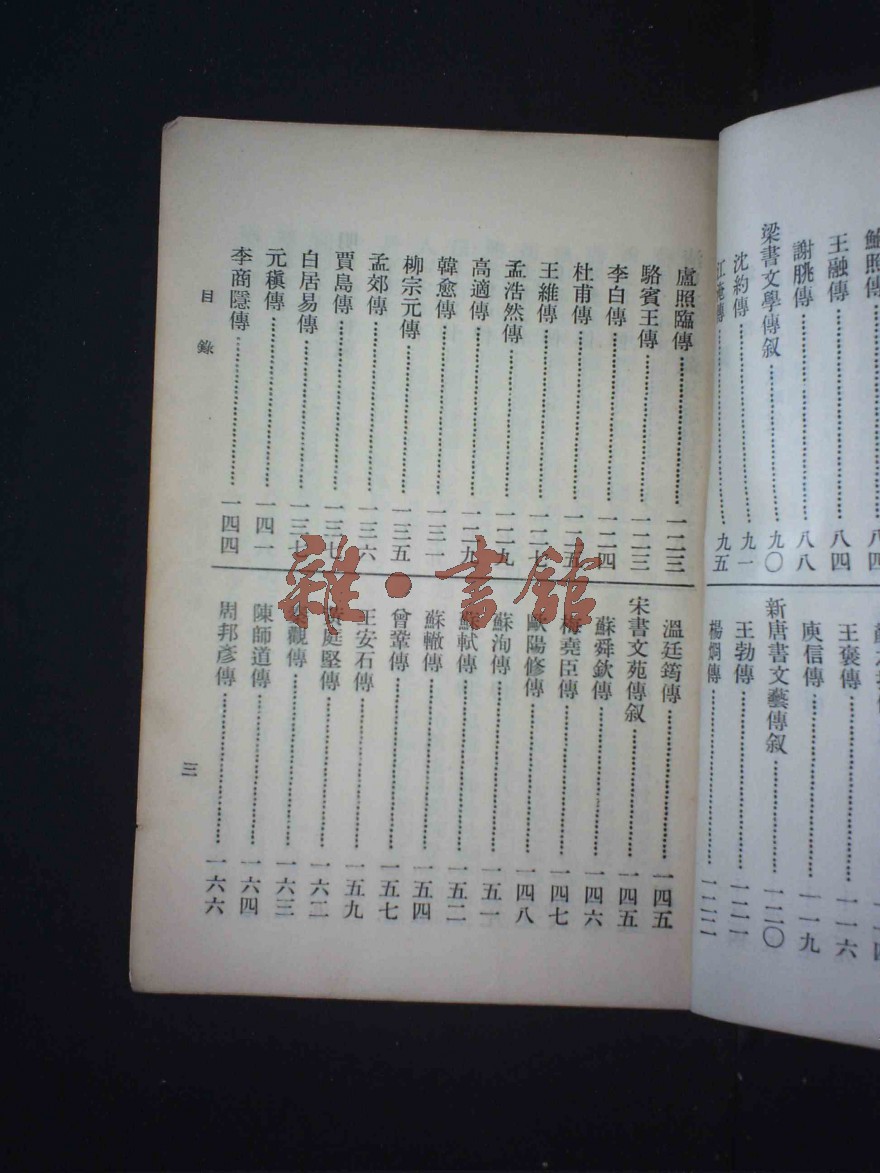 鮑照傳……八四
王融傳……八四
謝朓傳……八八
梁書文學傳叙……九〇
沈約傳……九一
江淹傳……九五
王褒傳……一一六
庾信傳……一一九
新唐書文藝傳叙……一二〇
王勃傳……一二一
楊炯傳……一二二
盧照臨傳……一二三
駱賓王傳……一二三
李白傳……一二四
杜甫傳……一二五
王維傳……一二七
孟浩然傳……一二九
高適傳……一二九
韓愈傳……一三一
柳宗元傳……一三五
孟郊傳……一三六
賈島傳……一三七
白居易傳……一三七
元稹傳……一四一
李商隱傳……一四四
溫廷筠傳……一四五
宋書文苑傳叙……一四五
蘇舜欽傳……一四六
梅堯臣傳……一四七
歐陽修傳……一四八
蘇洵傳……一五一
蘇軾傳……一五二
蘇轍傳……一五四
曾鞏傳……一五七
王安石傳……一五九
黃庭堅傳……一六二
秦觀傳……一六三
陳師道傳……一六四
周邦彥傳……一六六
目錄
三
雜·書館